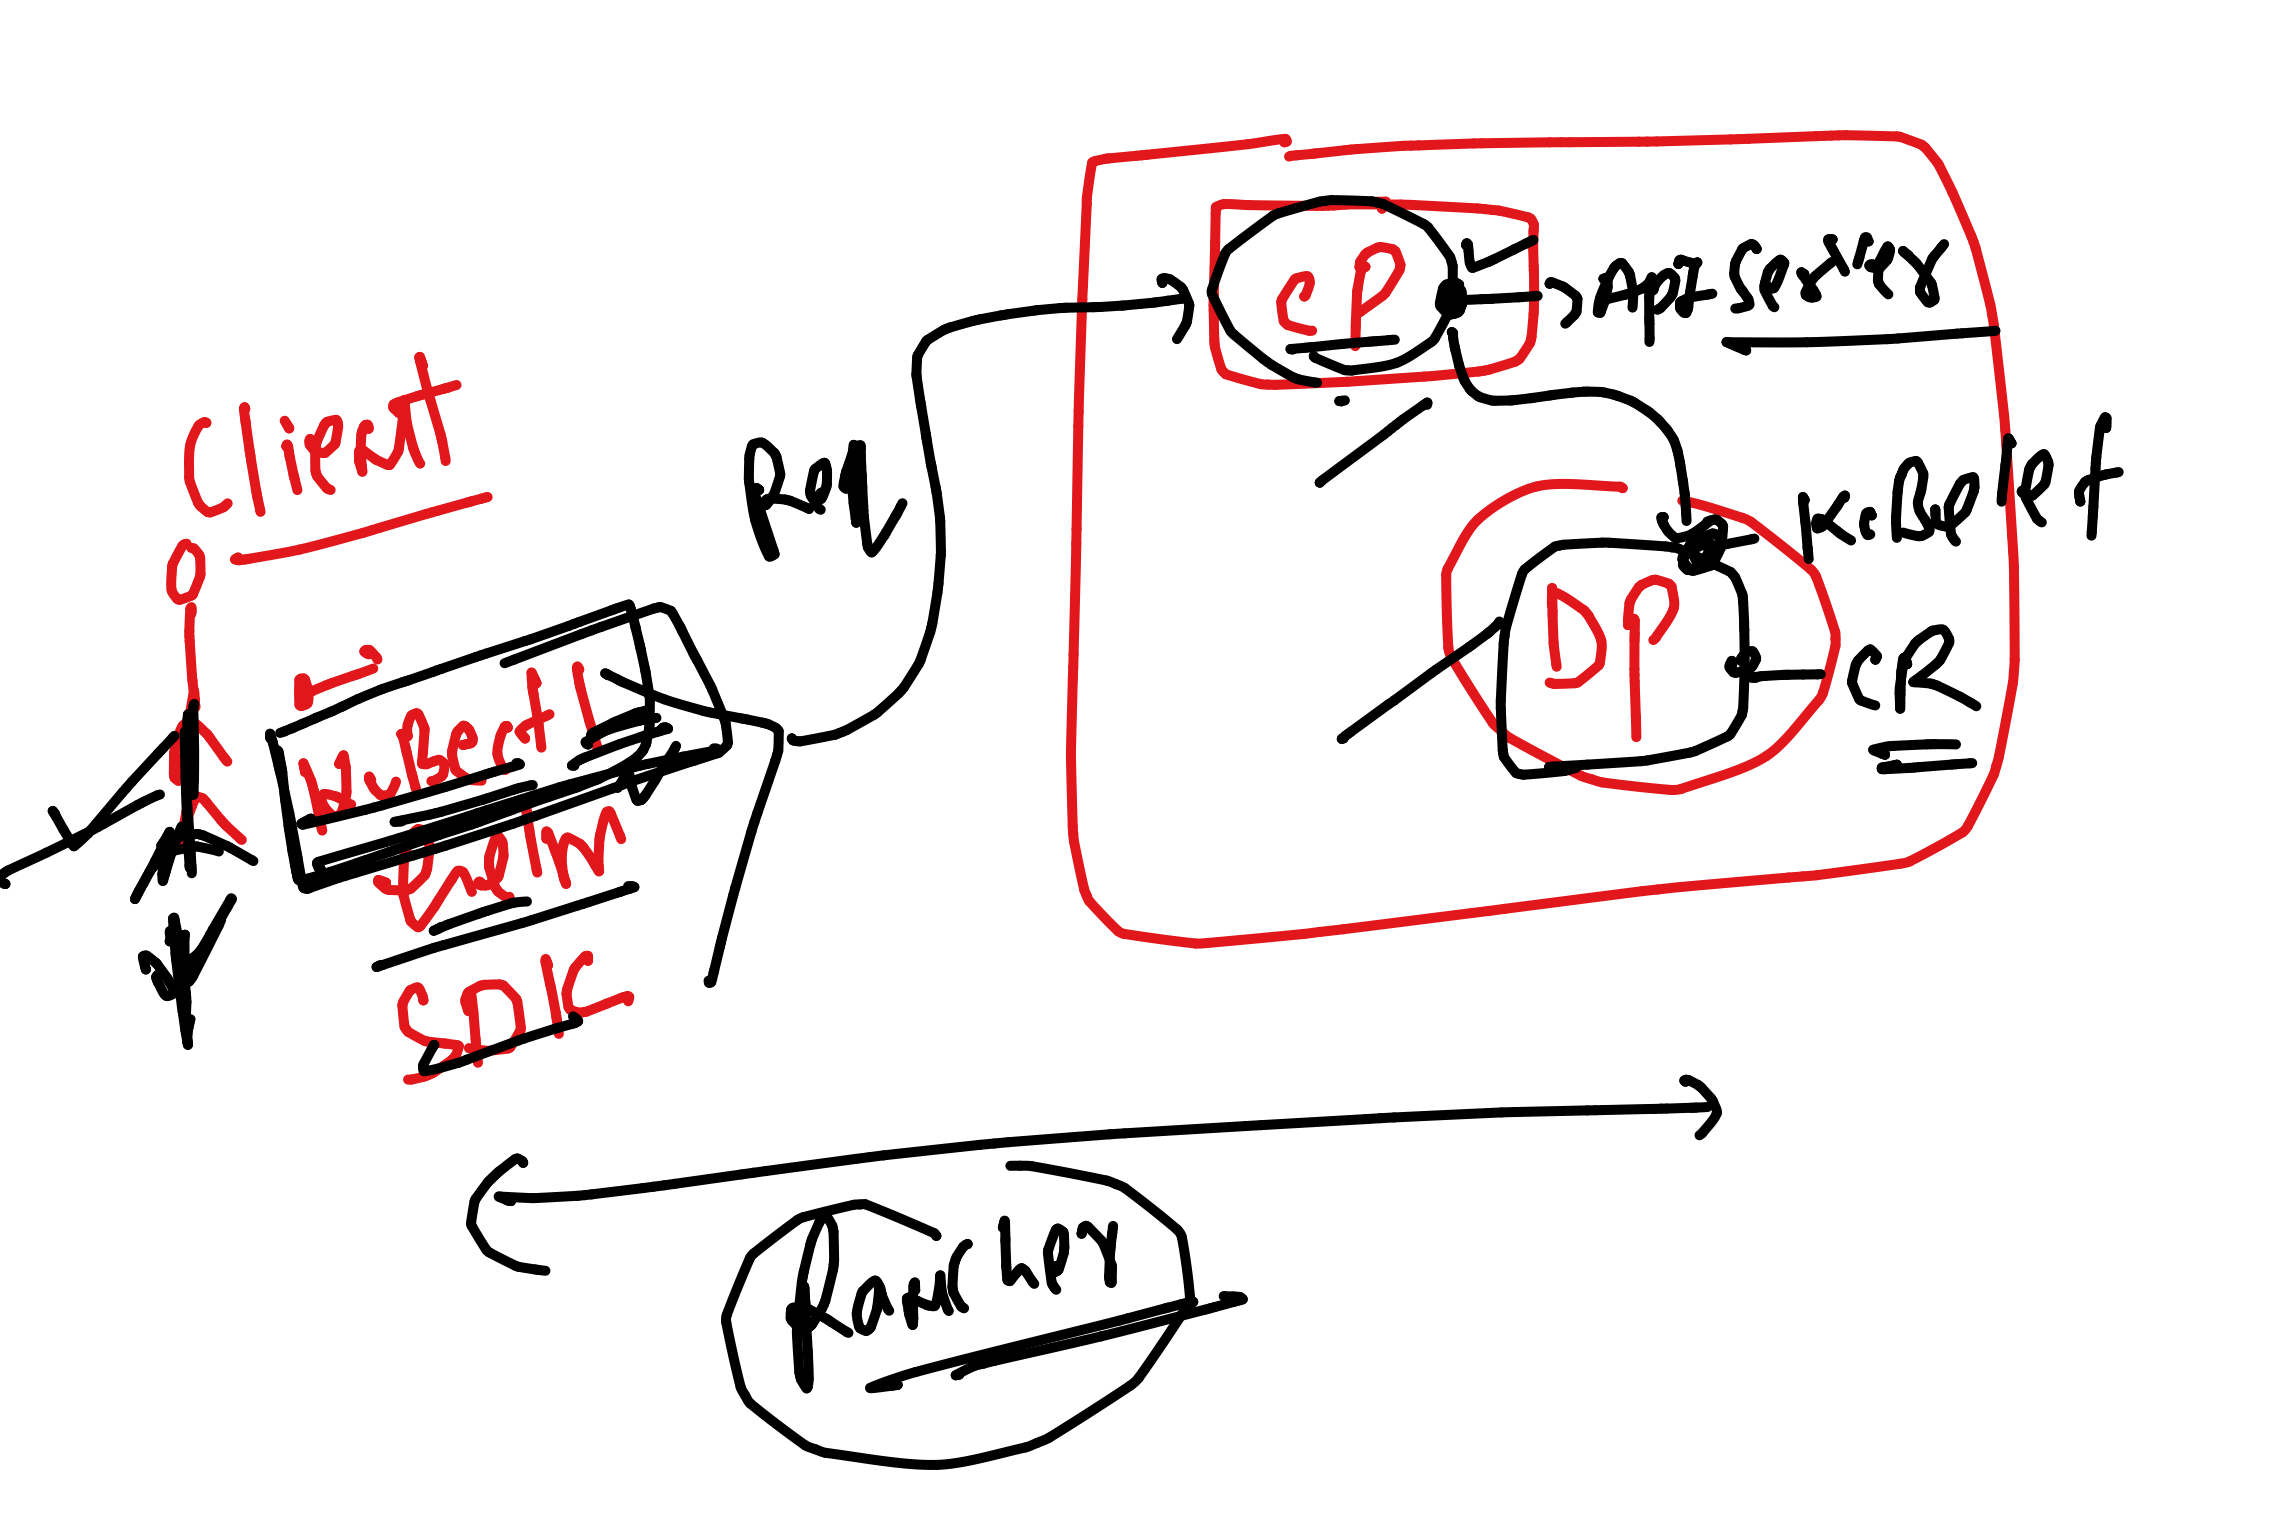 Client
Kubectl
Helm
SDK
Req
CP
API Server
Kubelet
DP
CR
Rancher